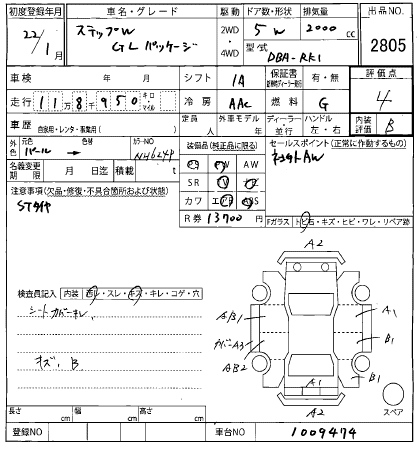 初度登録年月 車名・グレード 駆動 ドア数・形状 排気量 出品NO
22/1月 ステップW GL パッケージ 2WD・4WD 5W 2000cc 2805
型式 DBA-RK1
車検 年 月 シフト IA 保証書 有・無 評価点
走行 118950 キロ・マイル 冷房 AAC 燃料 G 4
車歴 自家用・レンタ・事業用( ) 定員 人 外車モデル 年 ディーラー 並行 ハンドル 左・右 内装評価 B
外色 元色 パール→ 色替 カラーNO NH624P 装備品(純正品に限る) セールスポイント(正常に作動するもの)
名義変更期限 月 日迄 積載 t AW
注意事項(欠品・修復・不具合箇所および状態) SR
STタイヤ カワ エアB ABS
R券 13700円 Fガラス トビ石・キズ・ヒビ・ワレ・リペア跡
検査員記入 内装 汚レ・スレ・キズ・キレ・コゲ・穴
シートカバーキレ、
キズ、B
A2
A/B1 A1
カバーA3 B1
AB2 B1
A1
A2
スペア
長さ cm 幅 cm 高さ cm
登録NO 車台NO 1009474